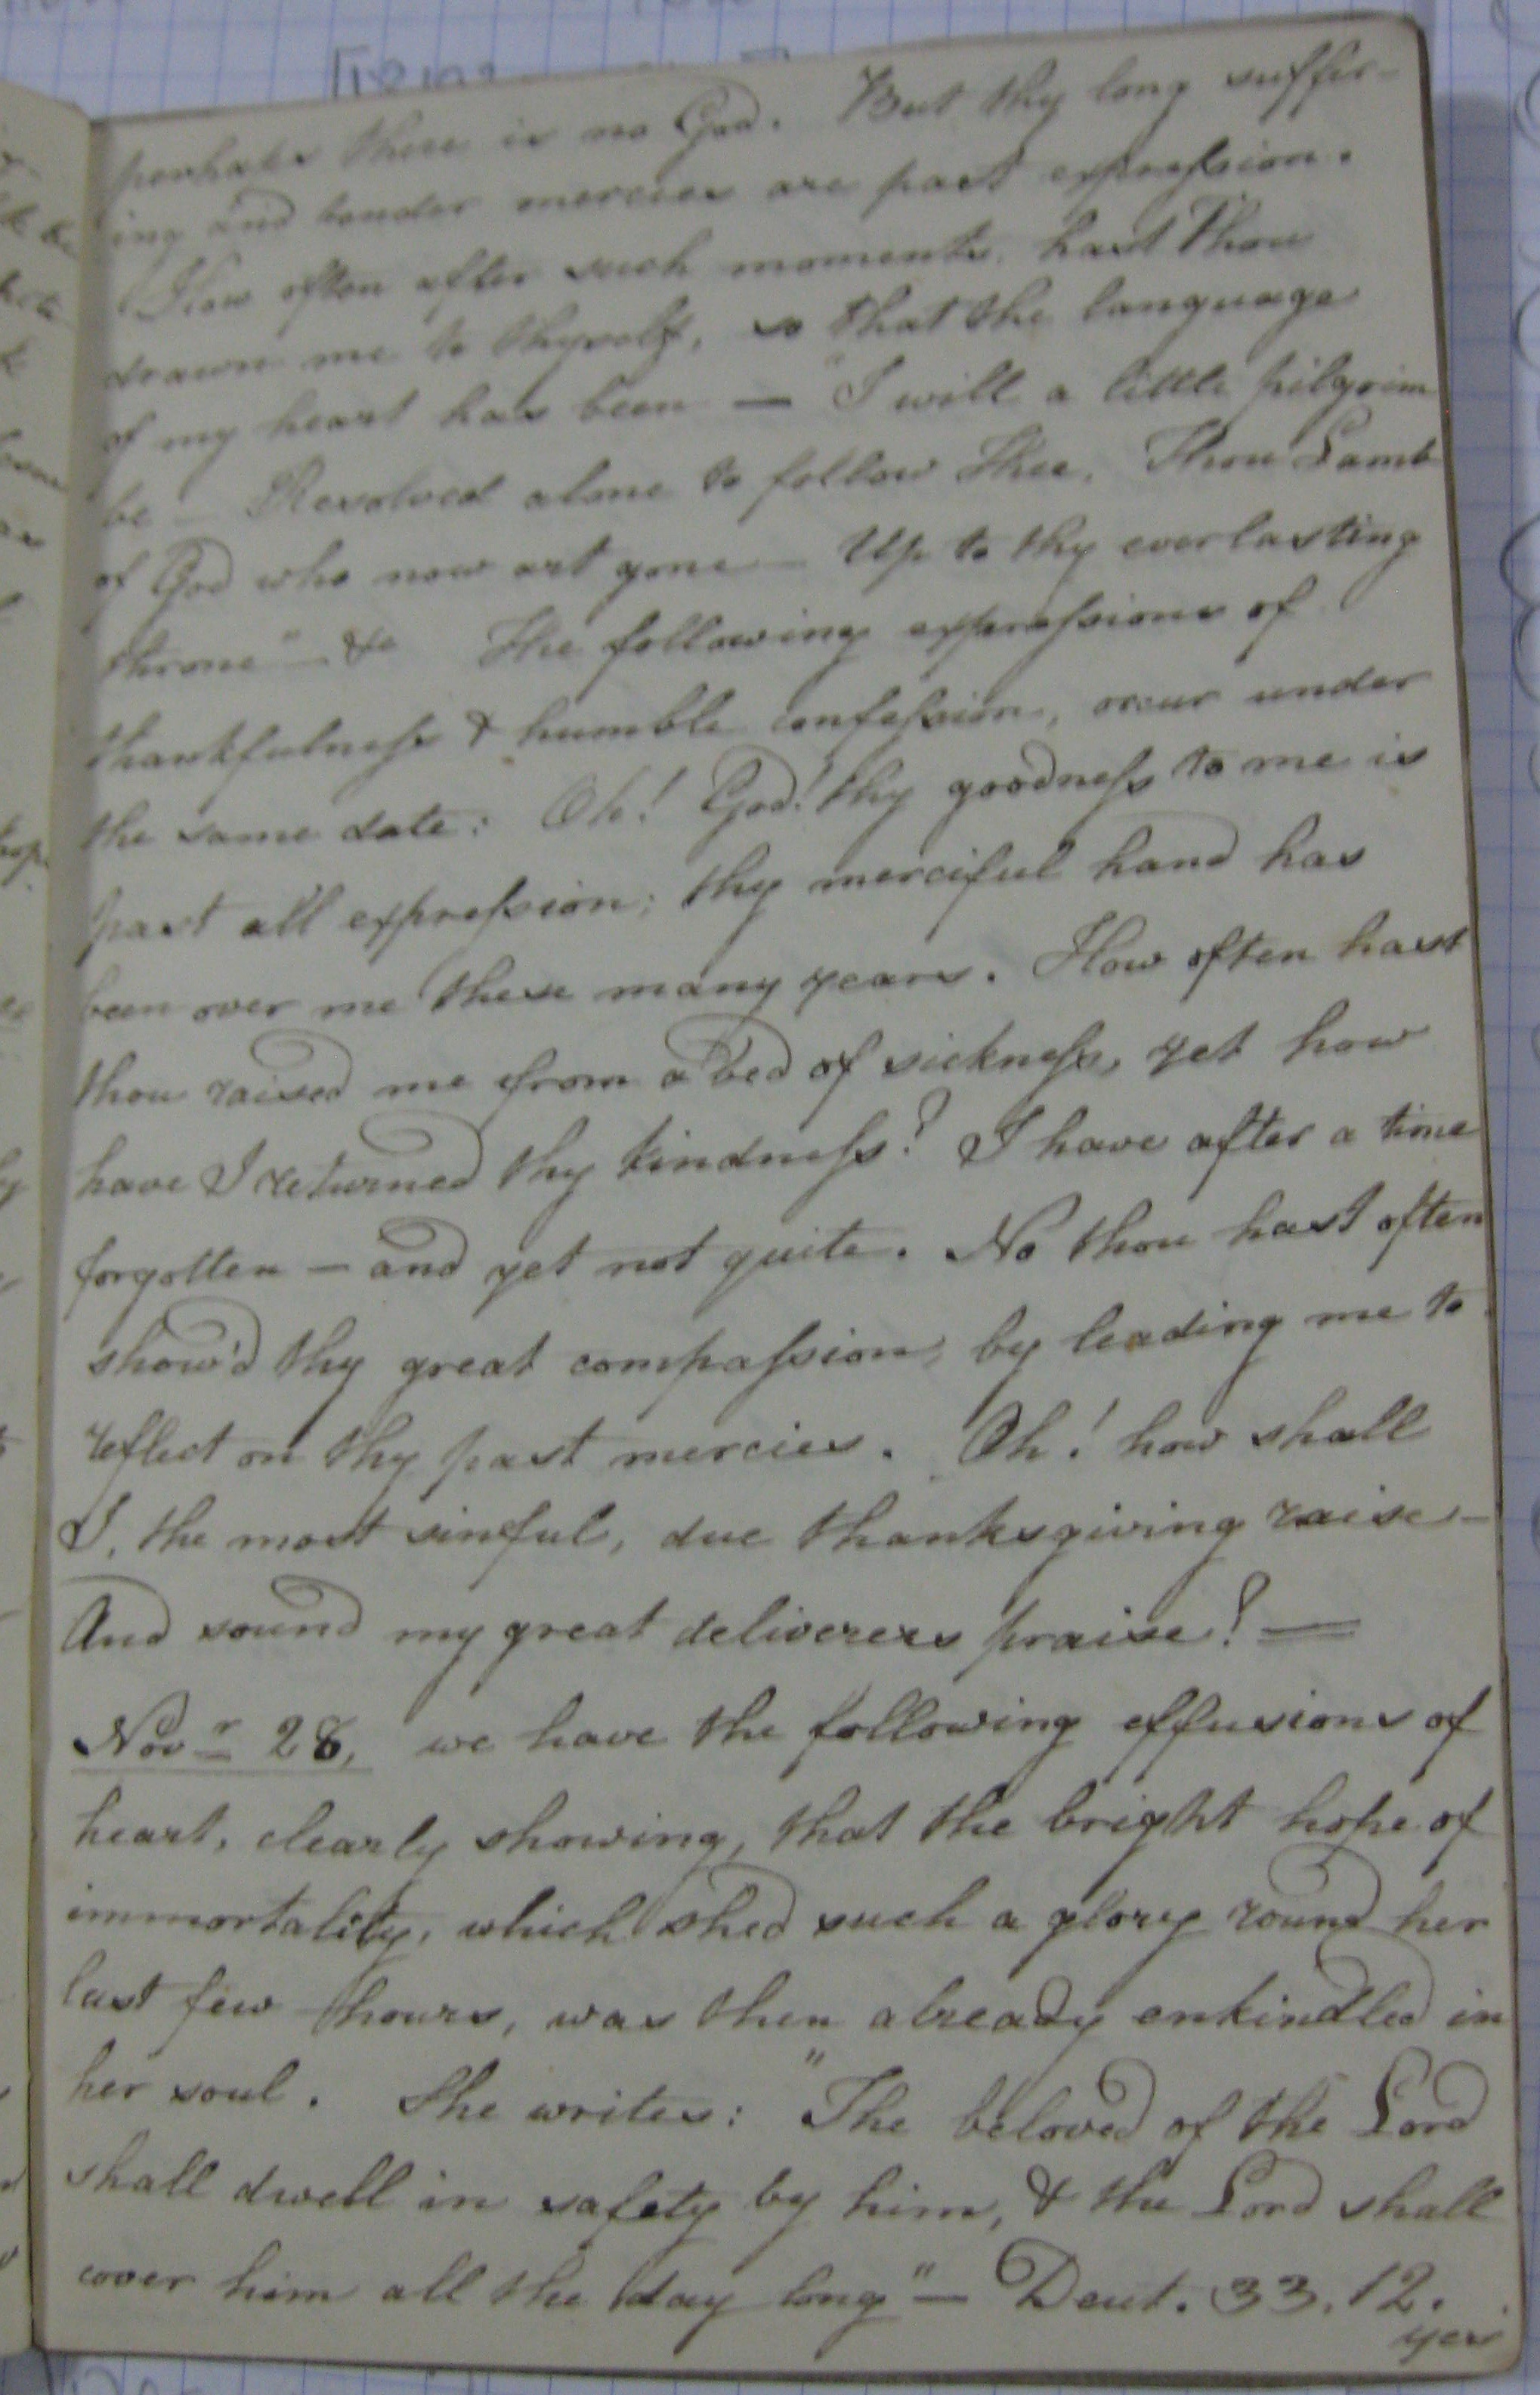 perhaps there is no God. But thy long suffer-
ing and tender mercies are past expression.
How often after such moments, hast Thou
drawn me to thyself, so that the language
of my heart has been — "I will a little pilgrim
be — Resolved alone to follow thee, Thou Lamb
of God who now art gone — Up to thy everlasting
throne" — &c The following expressions of
thankfulness & humble confession, occur under
the same date: Oh! God! thy goodness to me is
past all expression; thy merciful hand has
been over me these many years. How often hast
thou raised me from a bed of sickness, yet how
have I returned thy kindness? I have after a time
forgotten — and yet not quite. No thou hast often
show'd thy great compassion, by leading me to
reflect on thy past mercies. Oh! how shall
I, the most sinful, due thanksgiving raise —
And sound my great deliverers praise? —
Novr 28, we have the following effusions of
heart, clearly showing, that the bright hope of
immortality, which shed such a glory round her
last few hours, was then already enkindled in
her soul. She writes: "The beloved of the Lord
shall dwell in safety by him, & the Lord shall
cover him all the day long" — Deut. 33. 12.
yes